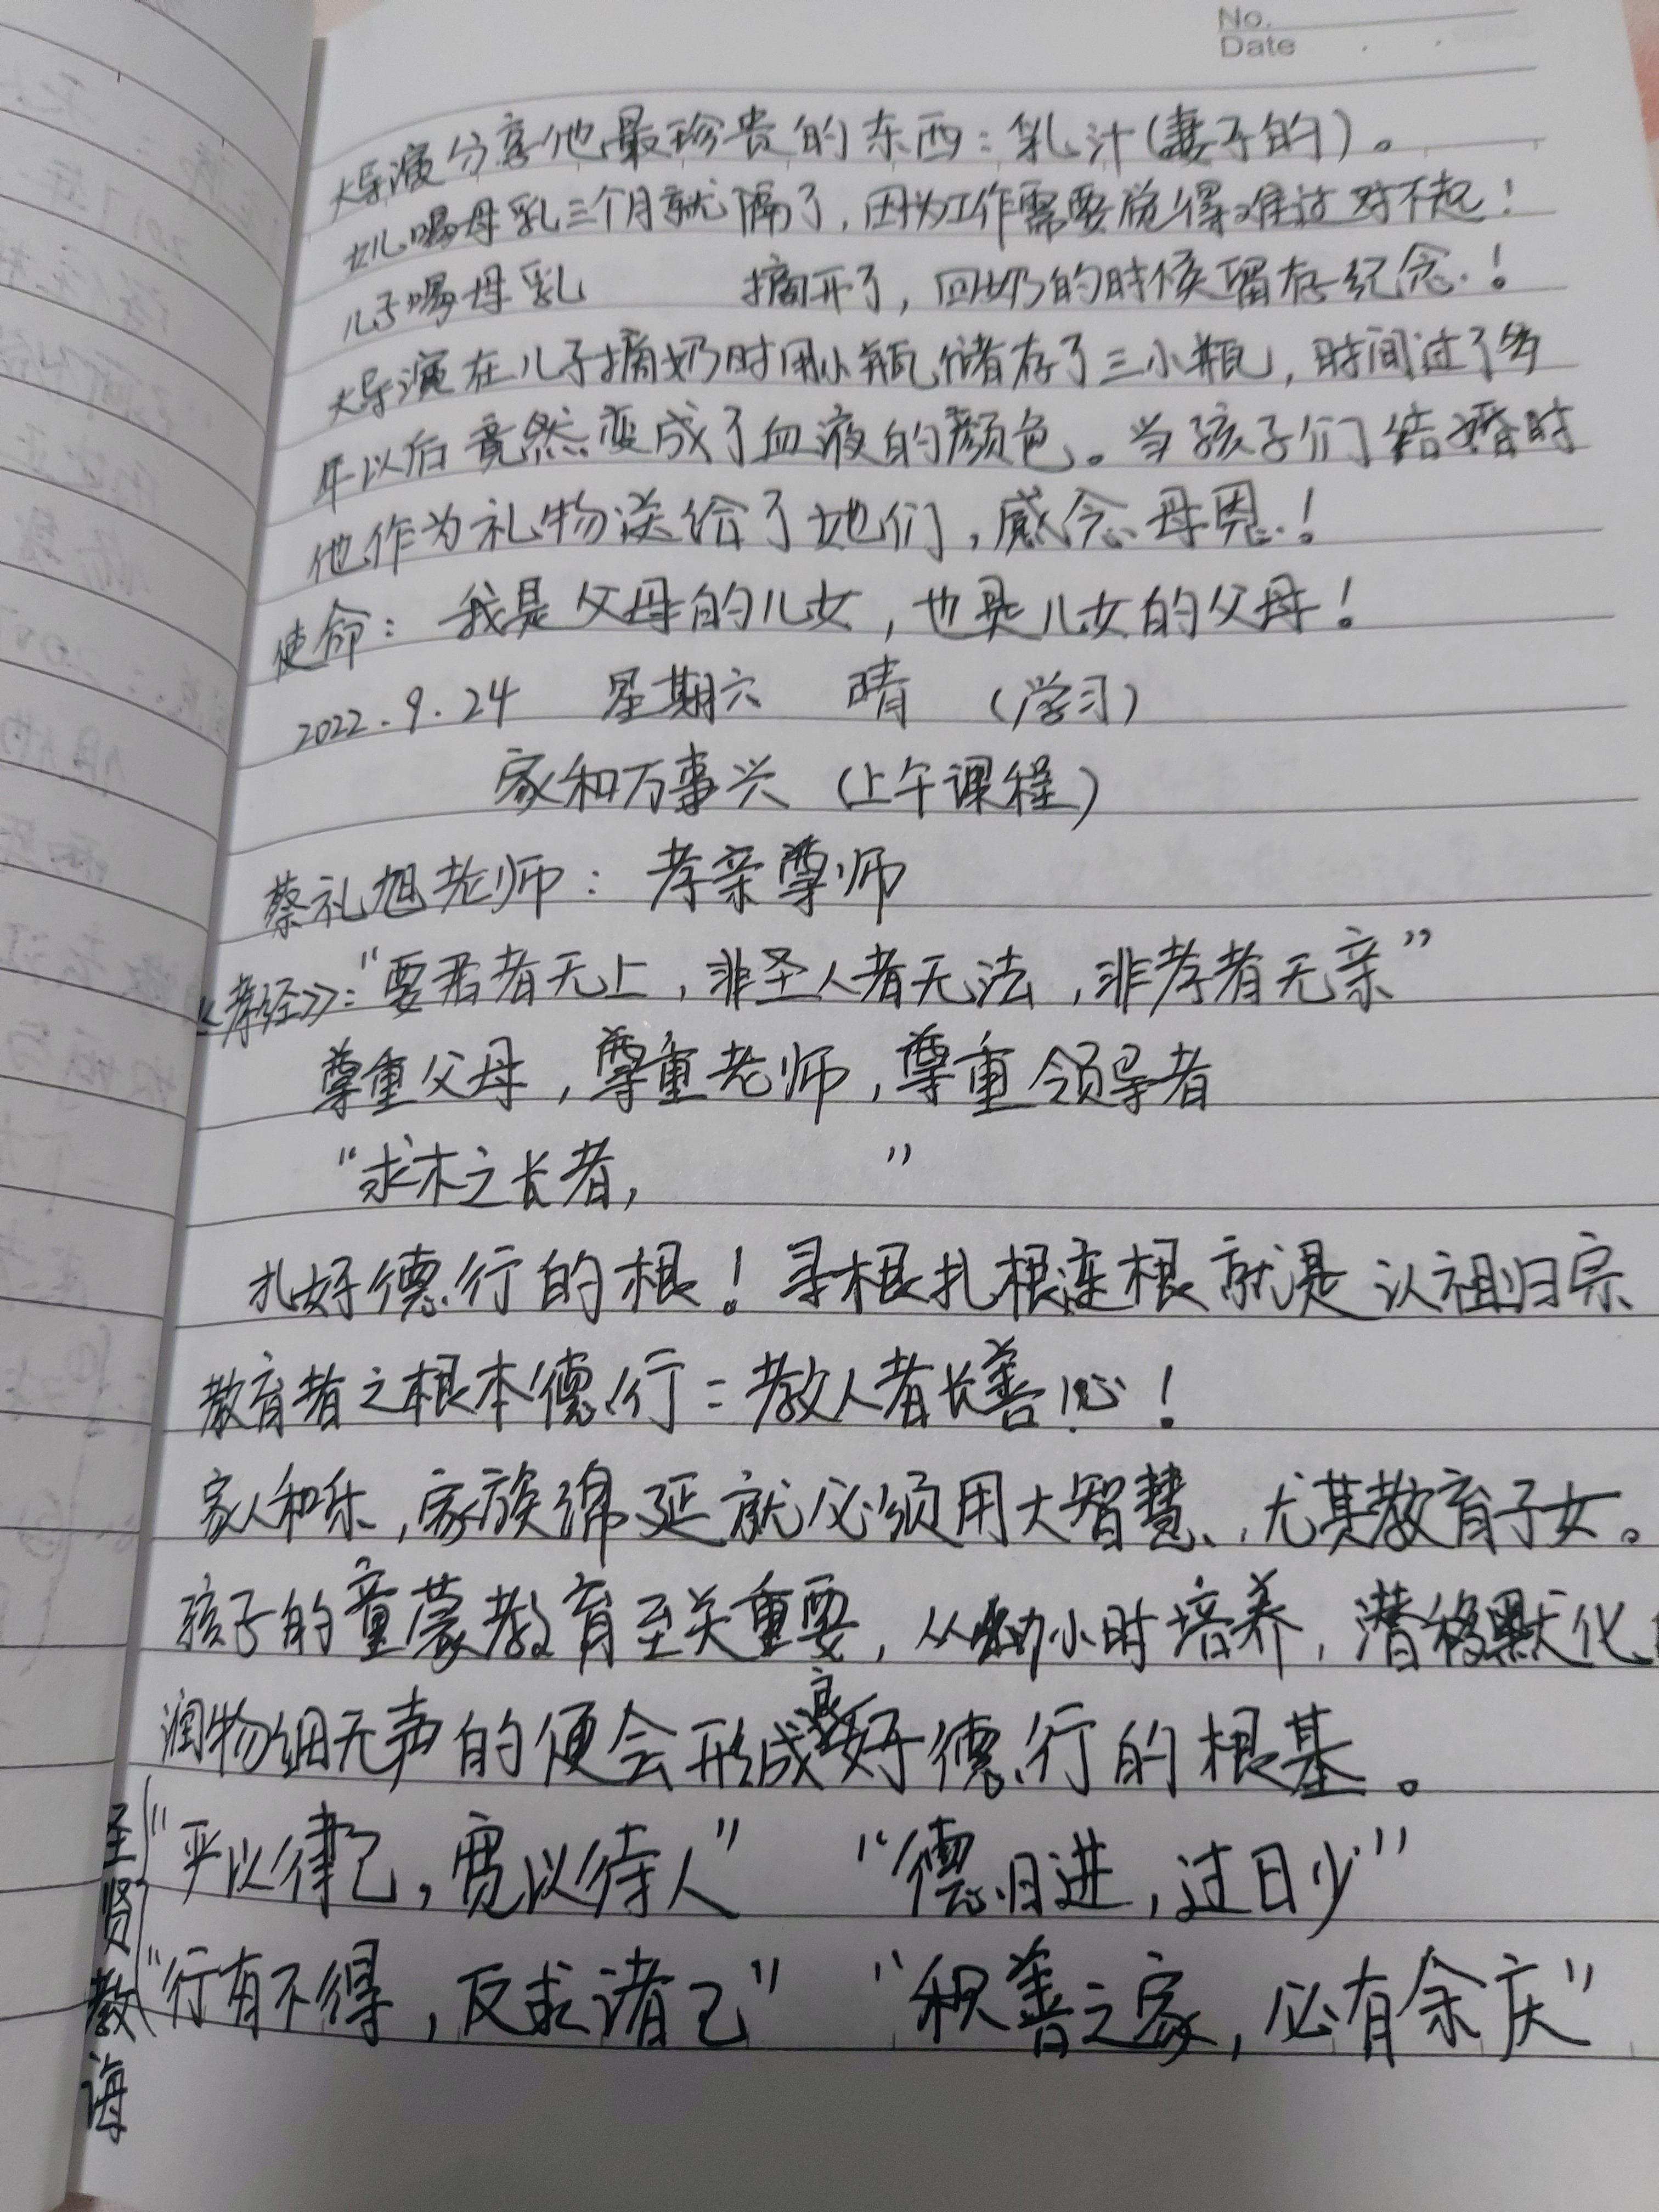 No.
Date
大导演分享他最珍贵的东西：乳汁(妻子的)。
女儿喝母乳三个月就隔了，因为工作需要觉得难过对不起！
儿子喝母乳 摘开了，回奶的时候留存纪念！
大导演在儿子摘奶时用小瓶储存了三小瓶，时间过了多
年以后竟然变成了血液的颜色。当孩子们结婚时
他作为礼物送给了她们，感念母恩！
使命：我是父母的儿女，也是儿女的父母！
2022.9.24 星期六 晴 (学习)
家和万事兴 (上午课程)
蔡礼旭老师：孝亲尊师
《孝经》：“要君者无上，非圣人者无法，非孝者无亲”
尊重父母，尊重老师，尊重领导者
“求木之长者， ”
扎好德行的根！寻根扎根连根就是认祖归宗
教育者之根本德行=教人者长善心！
家人和乐，家族绵延就必须用大智慧，尤其教育子女。
孩子的童蒙教育至关重要，从幼小时培养，潜移默化
润物细无声的便会形成良好德行的根基。
圣贤教诲
“严以律己，宽以待人” “德日进，过日少”
“行有不得，反求诸己” “积善之家，必有余庆”